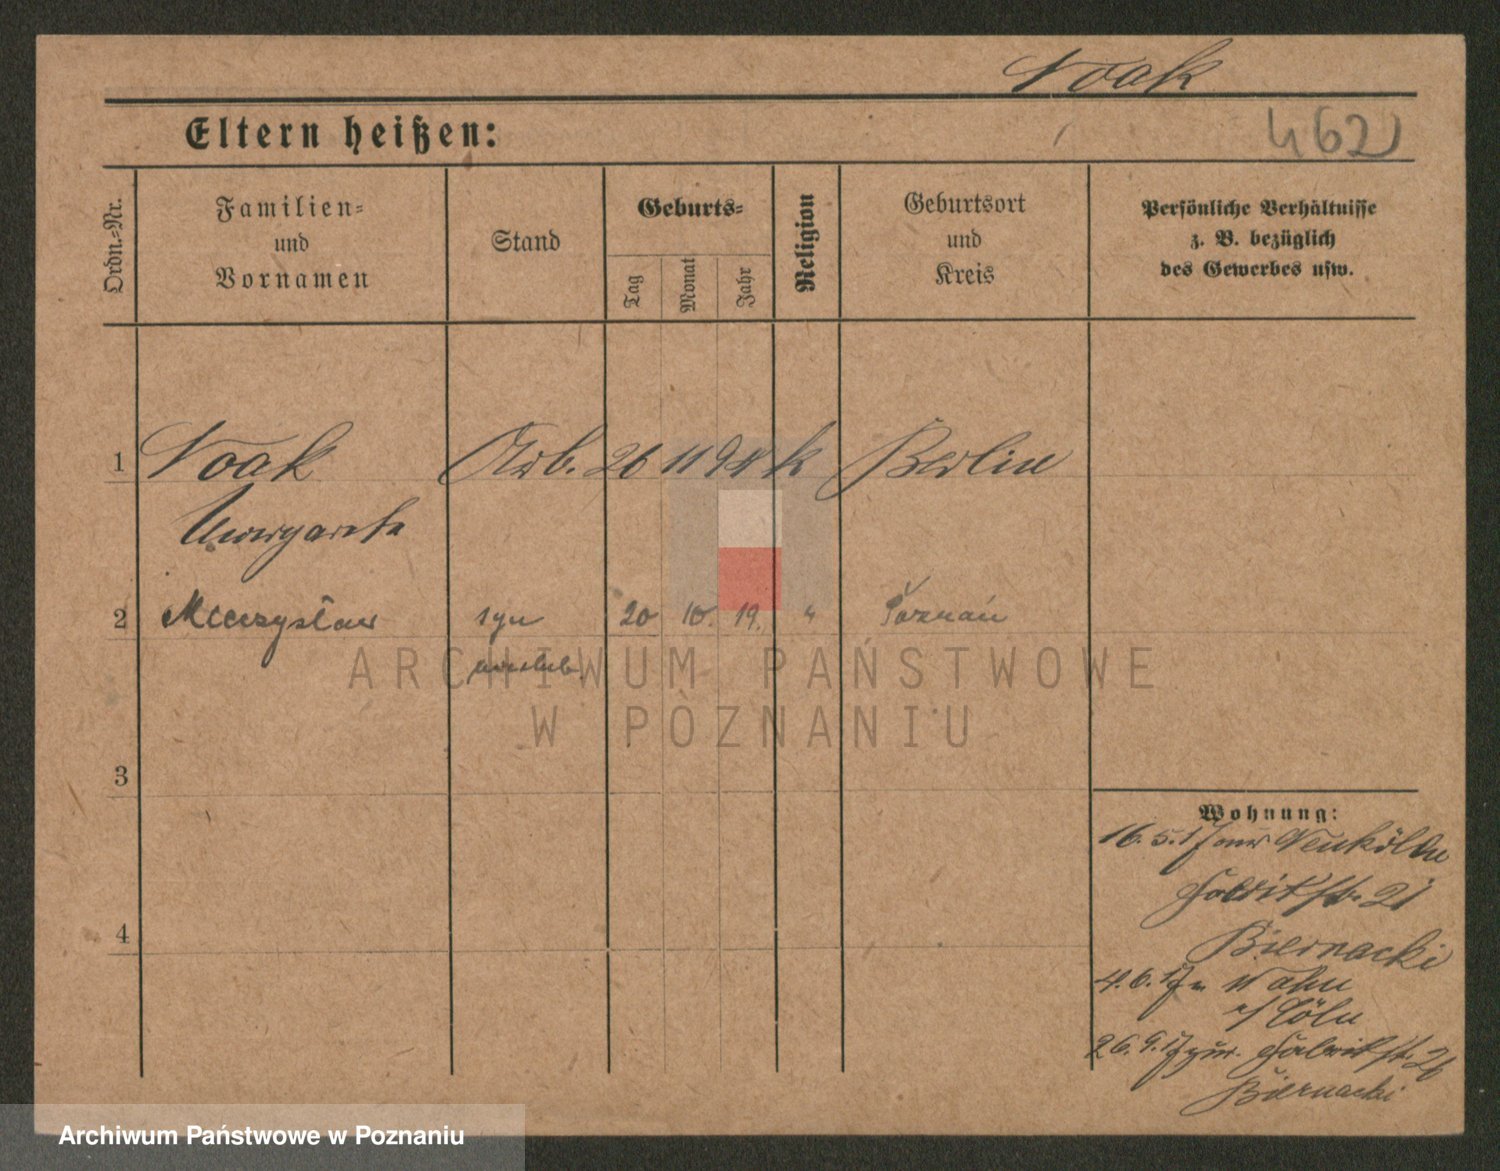 Noak
Eltern heißen:
462
Ordn.=Nr.
Familien=
und
Vornamen
Stand
Geburts=
Tag
Monat
Jahr
Religion
Geburtsort
und
Kreis
Persönliche Verhältnisse
z. B. bezüglich
des Gewerbes usw.
1 Noak Arb. 26 11 98 k Berlin
Margarete
2 Mieczysław syn 20 10. 19. " Poznań
nieślub.
ARCHIWUM PAŃSTWOWE
W POZNANIU
3
4
Wohnung:
16. 5. 17 Neukölln
21
Biernacki
4. 6. 17 n Wahn
a/ Cöln
26. 9. 17 zur. 26
Biernacki
Archiwum Państwowe w Poznaniu